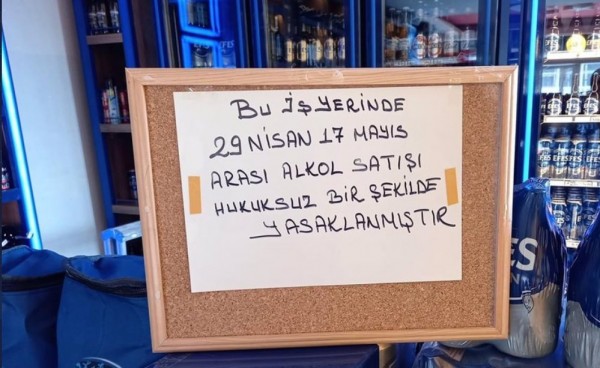 BU İŞYERİNDE
29 NİSAN 17 MAYIS
ARASI ALKOL SATIŞI
HUKUKSUZ BİR ŞEKİLDE
YASAKLANMIŞTIR
EFES
EFES
ES